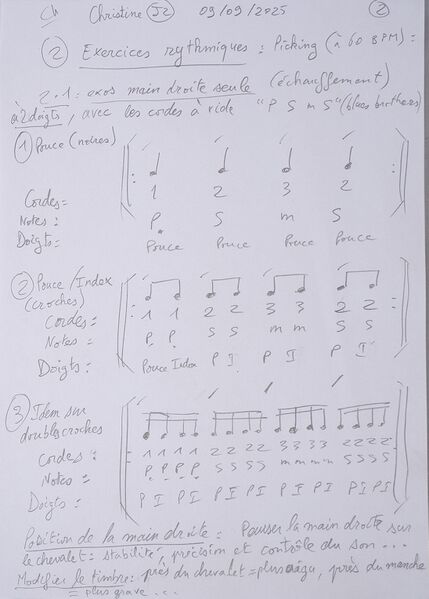 Ch Christine J2 09/09/2025 2
2 Exercices rythmiques : Picking (à 60 BPM) :
2.1 : exos main droite seule (échauffement)
à 2 doigts, avec les cordes à vide "P S m S" (blues brothers)
1 Pouce (noires)
Cordes = 1 2 3 2
Notes : P S m S
Doigts : Pouce Pouce Pouce Pouce
2 Pouce / Index
(croches)
Cordes = 1 1 2 2 3 3 2 2
Notes = P P S S m m S S
Doigts : Pouce Index P I P I P I
3 Idem sur
doubles croches
Cordes = 1 1 1 1 2 2 2 2 3 3 3 3 2 2 2 2
Notes = P P P P S S S S m m m m S S S S
Doigts : P I P I P I P I P I P I P I P I
Position de la main droite : Pauser la main droite sur
le chevalet = stabilité, précision et contrôle du son ...
Modifier le timbre : près du chevalet = plus aigu, près du manche
= plus grave ...